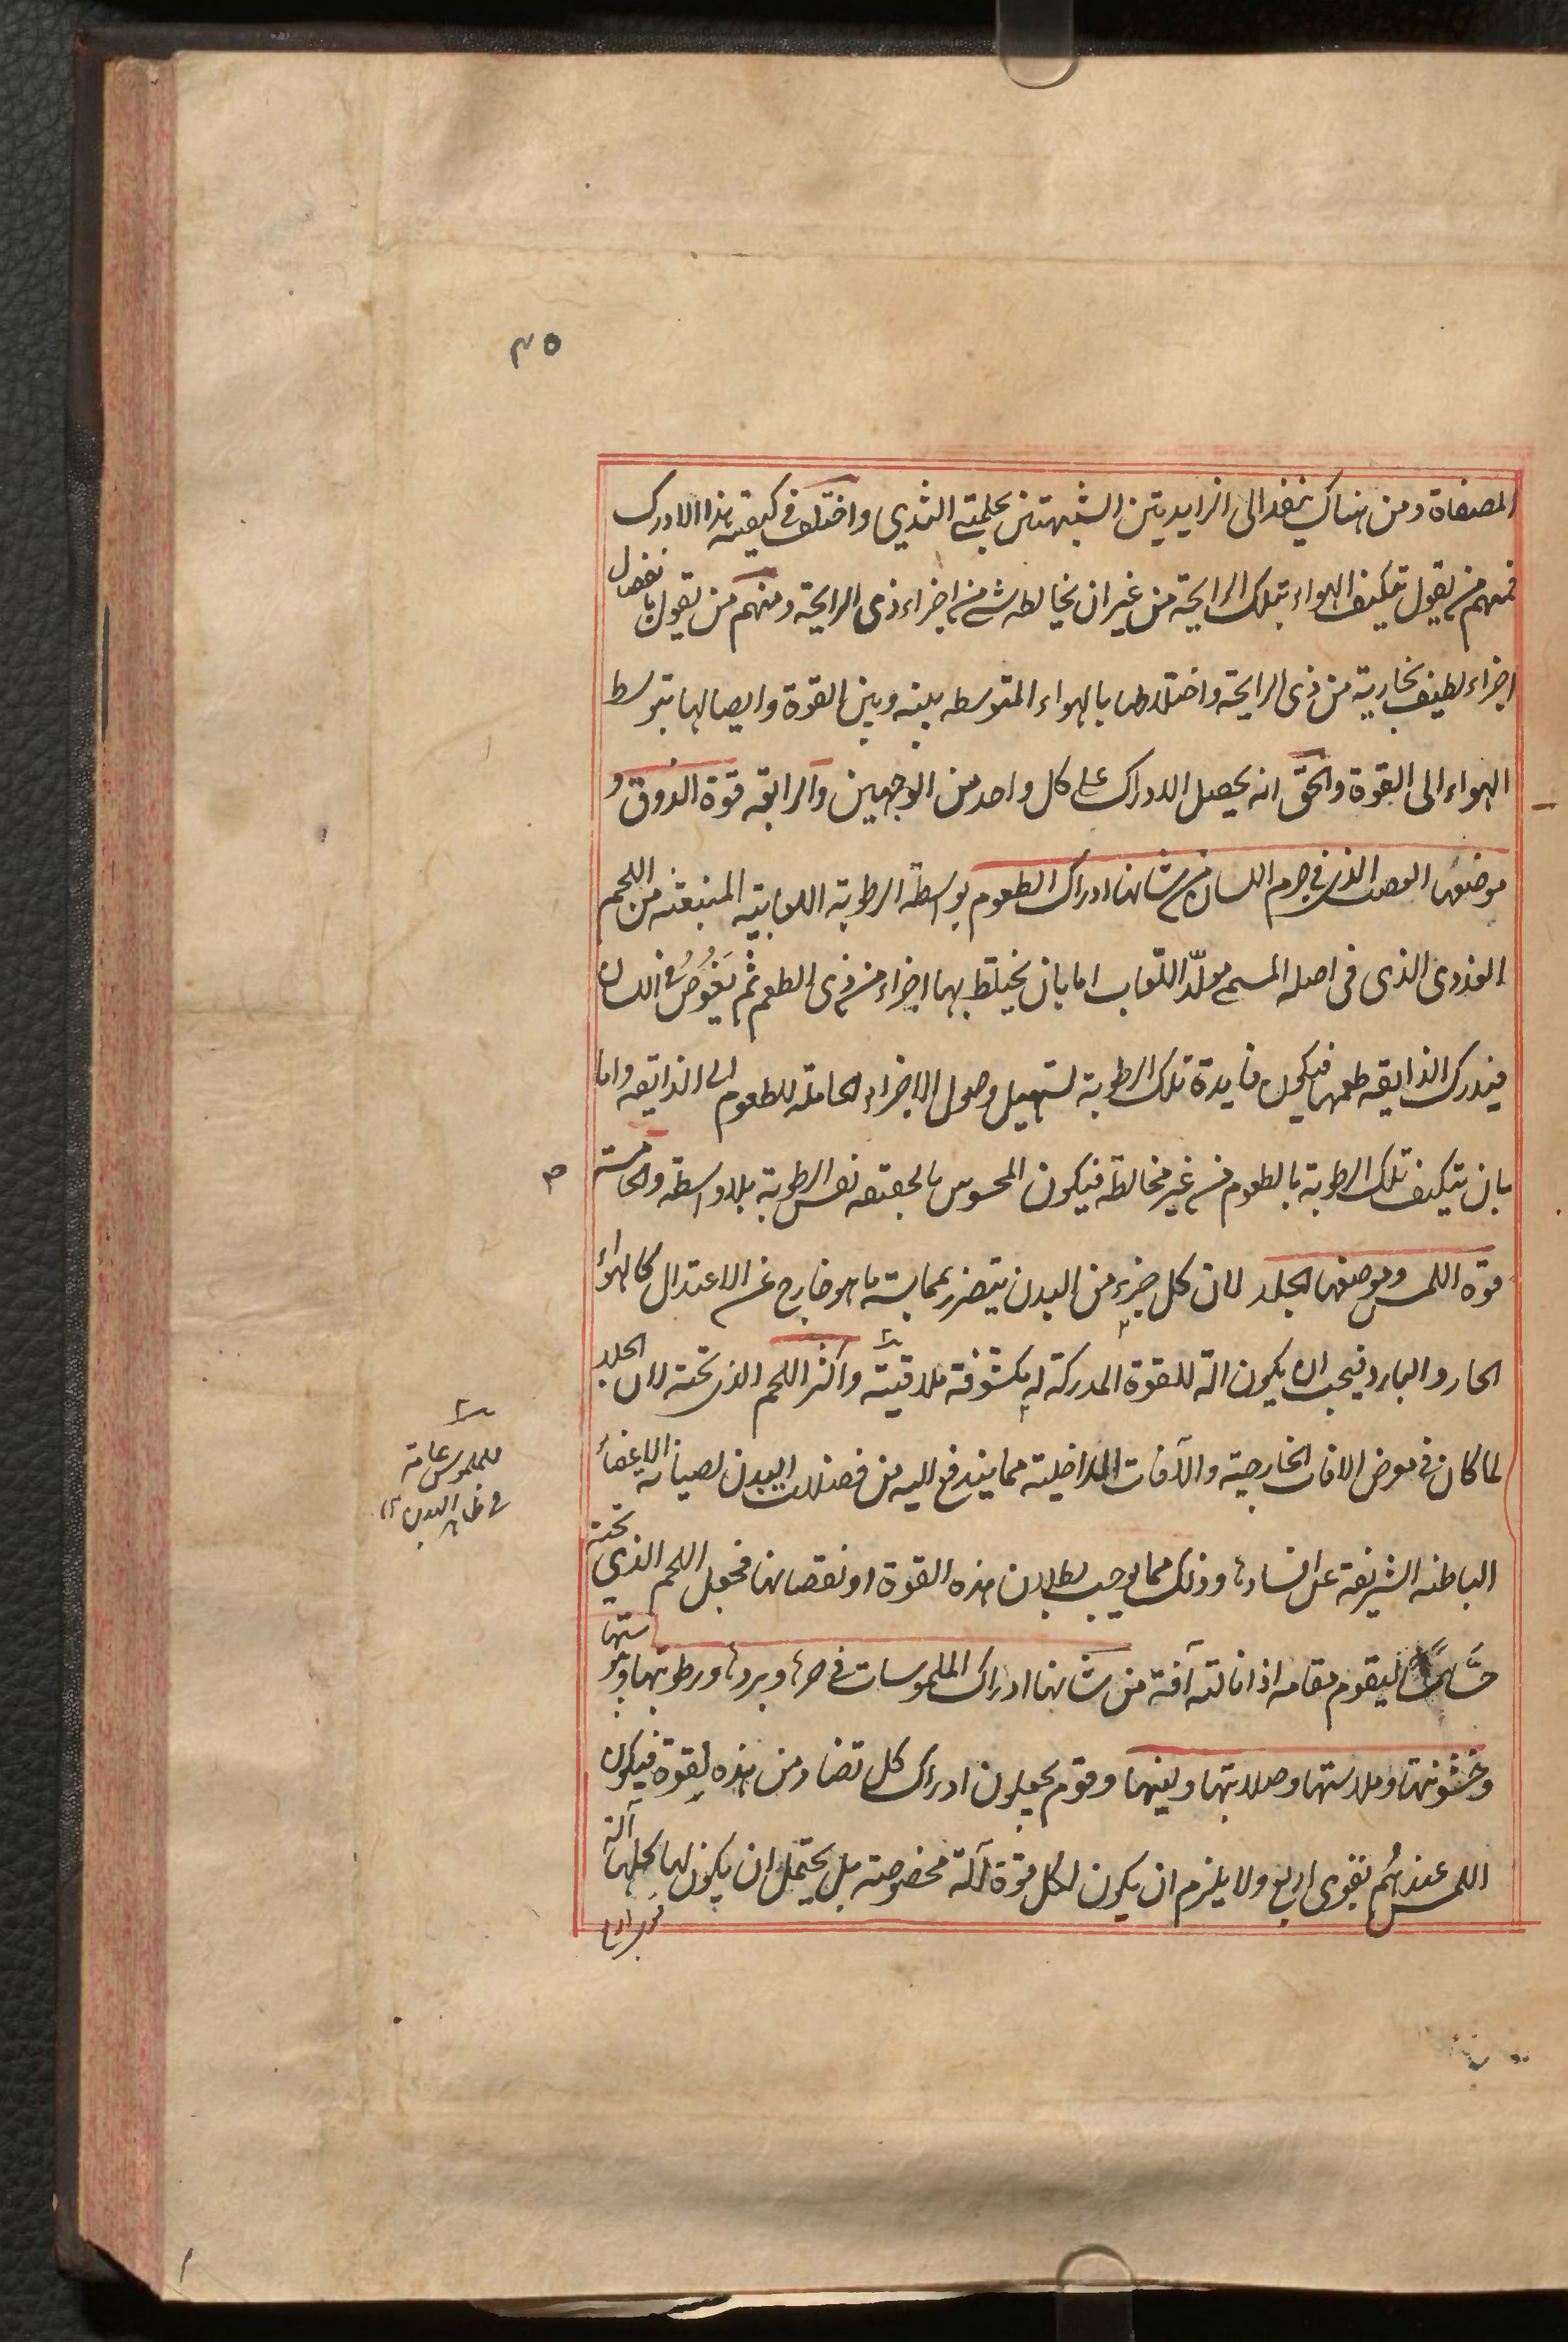 ٣٥
المصفاة ومن هناك ينفذ الى الزايديتين الشبيهتين بحلمتي الثدي واختلف في كيفية هذا الادراك
فمنهم من يقول تتكيف الهواء بتلك الرايحة من غير ان يخالطه شئ من اجزاء ذى الرايحة ومنهم من يقول بانفصال
اجزاء لطيفة بخارية من ذى الرايحة واختلاطها بالهواء المتوسطه بينه وبين القوة وايصالها بتوسط
الهواء الى القوة والحق انه يحصل الادراك على كل واحد من الوجهين والرابعة قوة الذوق و
موضعها العصب الذي في جرم اللسان من شانها ادراك الطعوم بواسطة الرطوبة اللعابية المنبعثة من اللحم
الغددى الذى في اصله المسمى مولّد اللّعاب اما بان يختلط بها اجزاء من ذى الطعم ثم يَغُوصُ في اللسان
فيدرك الذايقه طعمها فيكون فايدة تلك الرطوبة تسهيل وصول الاجزاء الحاملة للطعوم الى الذايقه واما
بان يتكيف تلك الرطوبة بالطعوم من غير مخالطة فيكون المحسوس بالحقيقه نفس الرطوبة بلا واسطة والخامسة
قوة اللمس وموضعها الجلد لان كل جزء من البدن يتضرر بمماسة ما هو خارج عن الاعتدال كالهواء
الحار والبارد فيجب ان يكون الة للقوة المدركة له مكشوفة ملاقية واكثر اللحم الذي تحته لان الجلد
لما كان في معرض الافات الخارجية والآفات الداخلية مما يندفع اليه من فضلات البدن لصيانة الاعضاء
الباطنه الشريفة عن افسادها وذلك مما يوجب بطلان هذه القوة او نقصانها فجعل اللحم الذي تحته
حسّاسا ليقوم مقامه اذا نالته آفة من شانها ادراك الملموسات في حرها وبردها ورطوبتها ويبوستها
وخشونتها وملاستها وصلابتها ولينها وقوم يجعلون ادراك كل تضاد من هذه لقوة فيكون
اللمس عندهُم بقوى اربع ولا يلزم ان يكون لكل قوة آلة مخصوصة بل يحتمل ان يكون لها كلها آلة
للملموس عامة
في ظاهر البدن